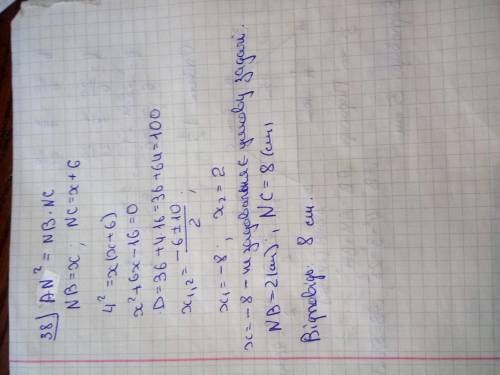 38) AN² = NB·NC
NB=x; NC=x+6
4²=x(x+6)
x²+6x-16=0
D=36+4·16=36+64=100
x₁,₂=(-6±10)/2;
x₁=-8; x₂=2
x=-8 - не задовольняє умову задачі.
NB=2(см); NC=8(см)
Відповідь: 8 см.